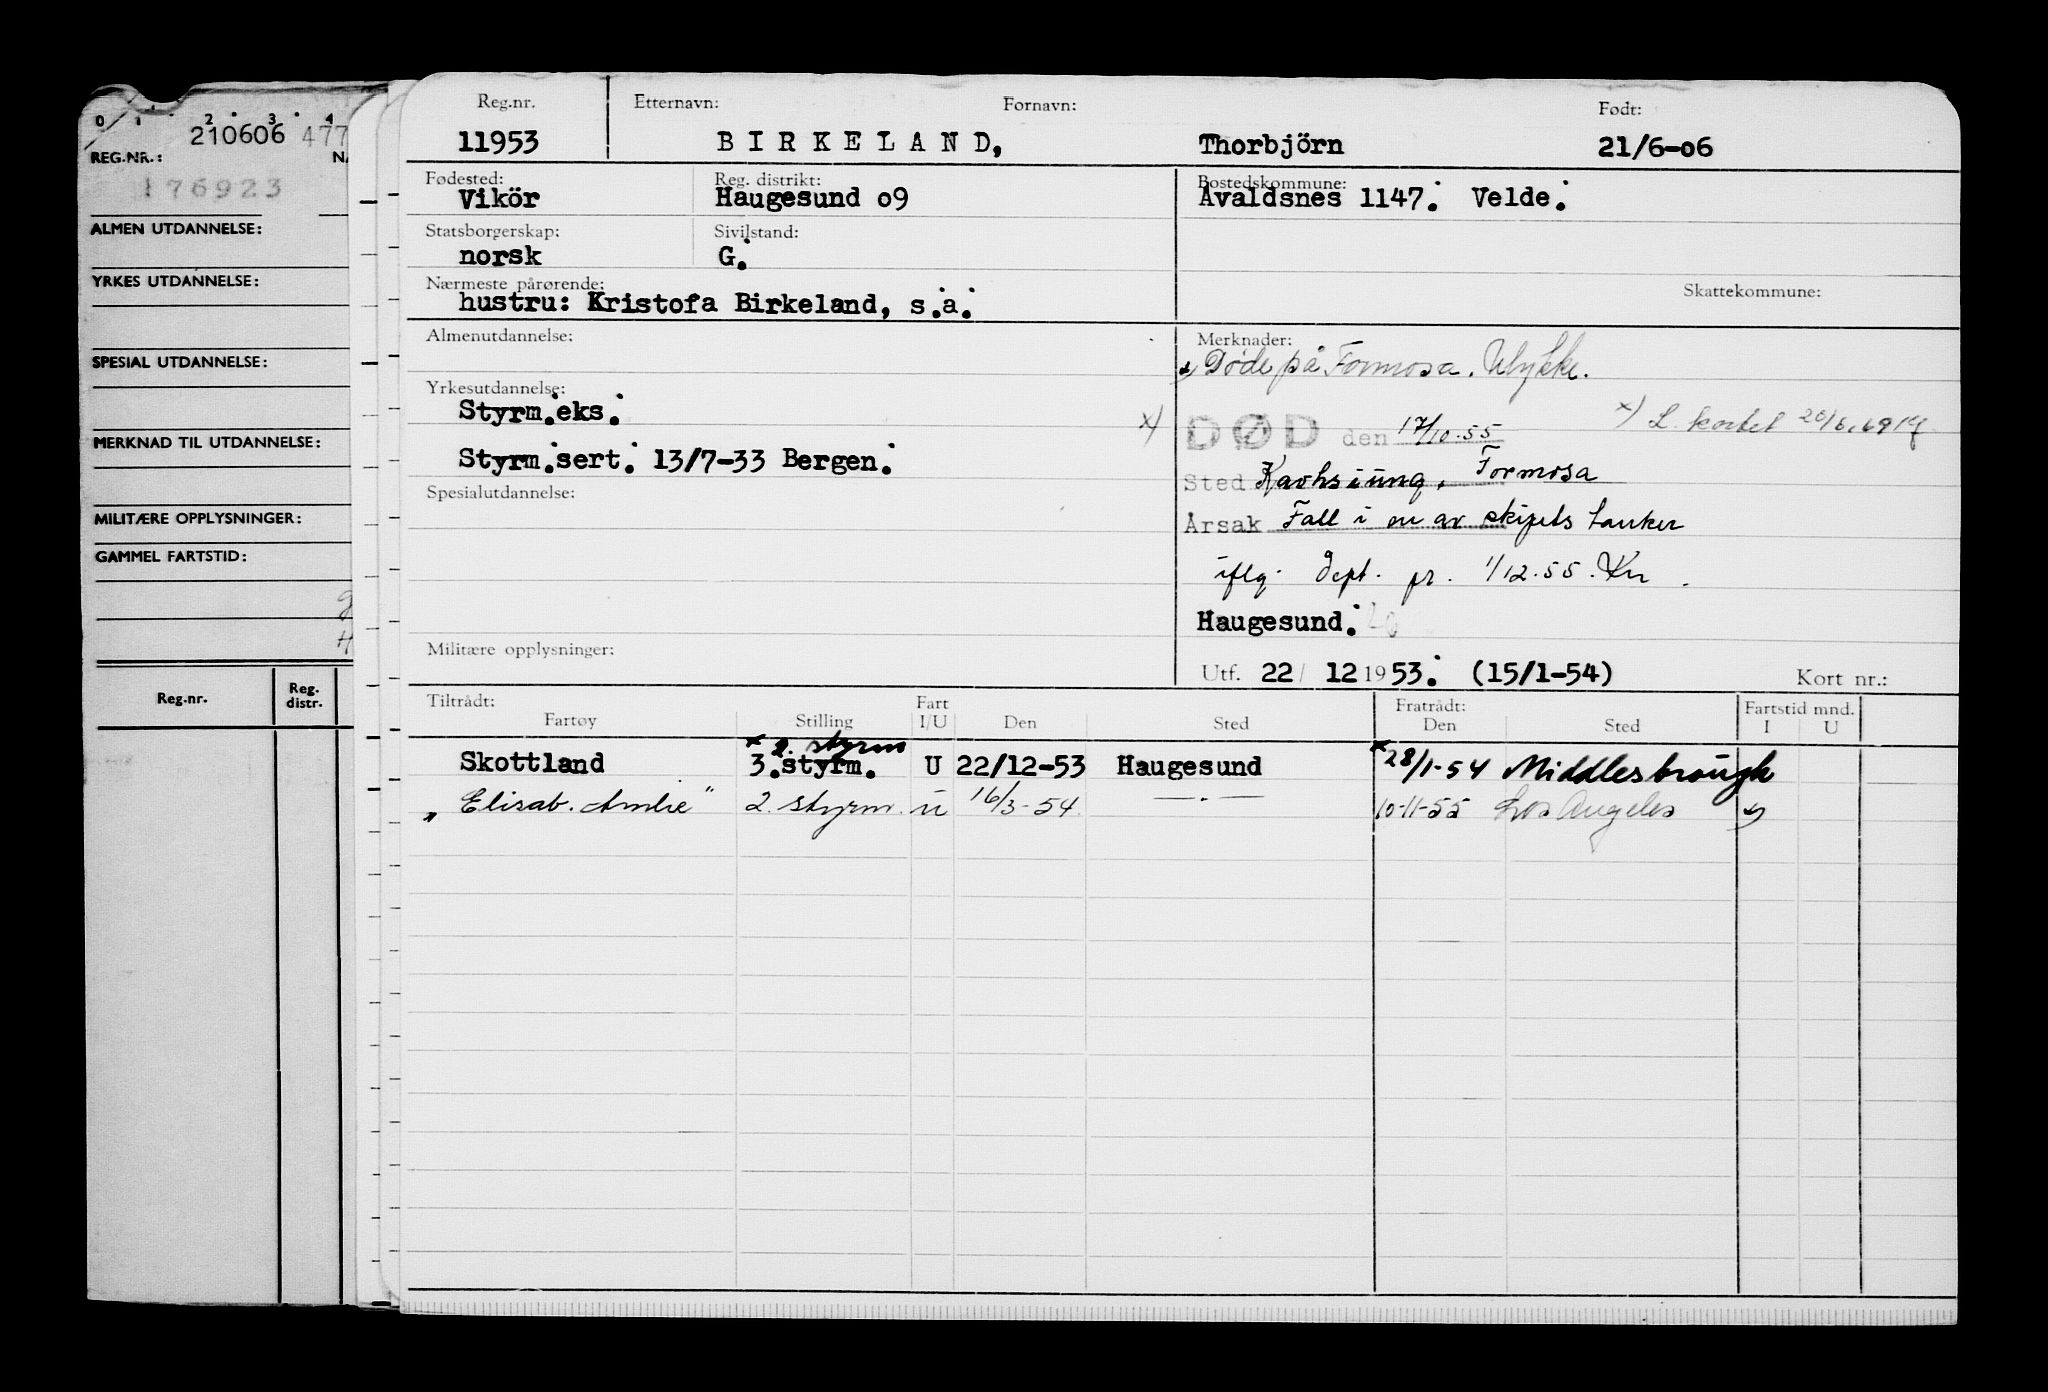 0 1 2 3 4
210606 477
REG.NR.: NA
176923
ALMEN UTDANNELSE:
YRKES UTDANNELSE:
SPESIAL UTDANNELSE:
MERKNAD TIL UTDANNELSE:
MILITÆRE OPPLYSNINGER:
GAMMEL FARTSTID:
Reg.nr. Reg. distr.
Reg.nr. Etternavn: Fornavn: Født:
11953 BIRKELAND, Thorbjörn 21/6-06
Fødested: Reg. distrikt: Bostedskommune:
Vikör Haugesund o9 Avaldsnes 1147. Velde.
Statsborgerskap: Sivilstand:
norsk G.
Nærmeste pårørende: Skattekommune:
hustru: Kristofa Birkeland, s.a.
Almenutdannelse: Merknader:
Døde på Formosa. Ulykke.
Yrkesutdannelse:
Styrm.eks.
x) DØD den 17/10.55 x) L. kortet 20/6.69
Styrm.sert. 13/7-33 Bergen.
Sted Kaohsiung, Formosa
Spesialutdannelse:
Årsak Fall i en av skipets tanker
iflg. Dept. pr. 1/12.55. Kn.
Haugesund.
Militære opplysninger:
Utf. 22/ 12 1953. (15/1-54) Kort nr.:
Tiltrådt: Fart Fratrådt: Fartstid mnd.
Fartøy Stilling I/U Den Sted Den Sted I U
x 2. styrm
Skottland 3.styrm. U 22/12-53 Haugesund x 28/1-54 Middlesbrough
"Elisab. Amlie" 2. styrm. u 16/3-54. —"— 10-11-55 Los Angeles